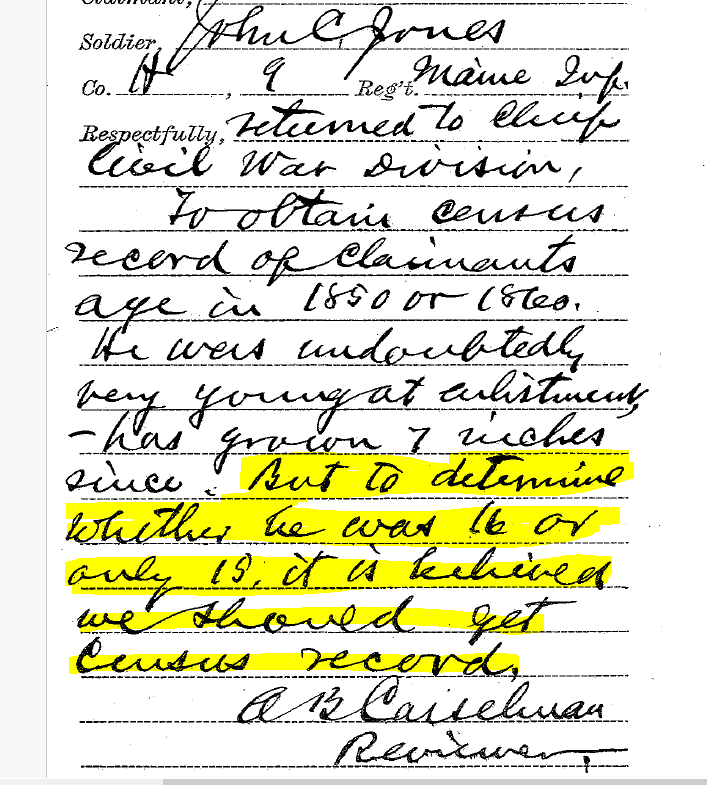 Claimant,
Soldier, John C. Jones
Co. H, 9 Reg't. Maine Inf.
Respectfully, returned to Chief
Civil War Division,
To obtain census
record of claimants
age in 1850 or 1860.
He was undoubtedly
very young at enlistment,
- has grown 7 inches
since. But to determine
whether he was 16 or
only 15, it is believed
we should get
Census record.
A B Casselman
Reviewer.